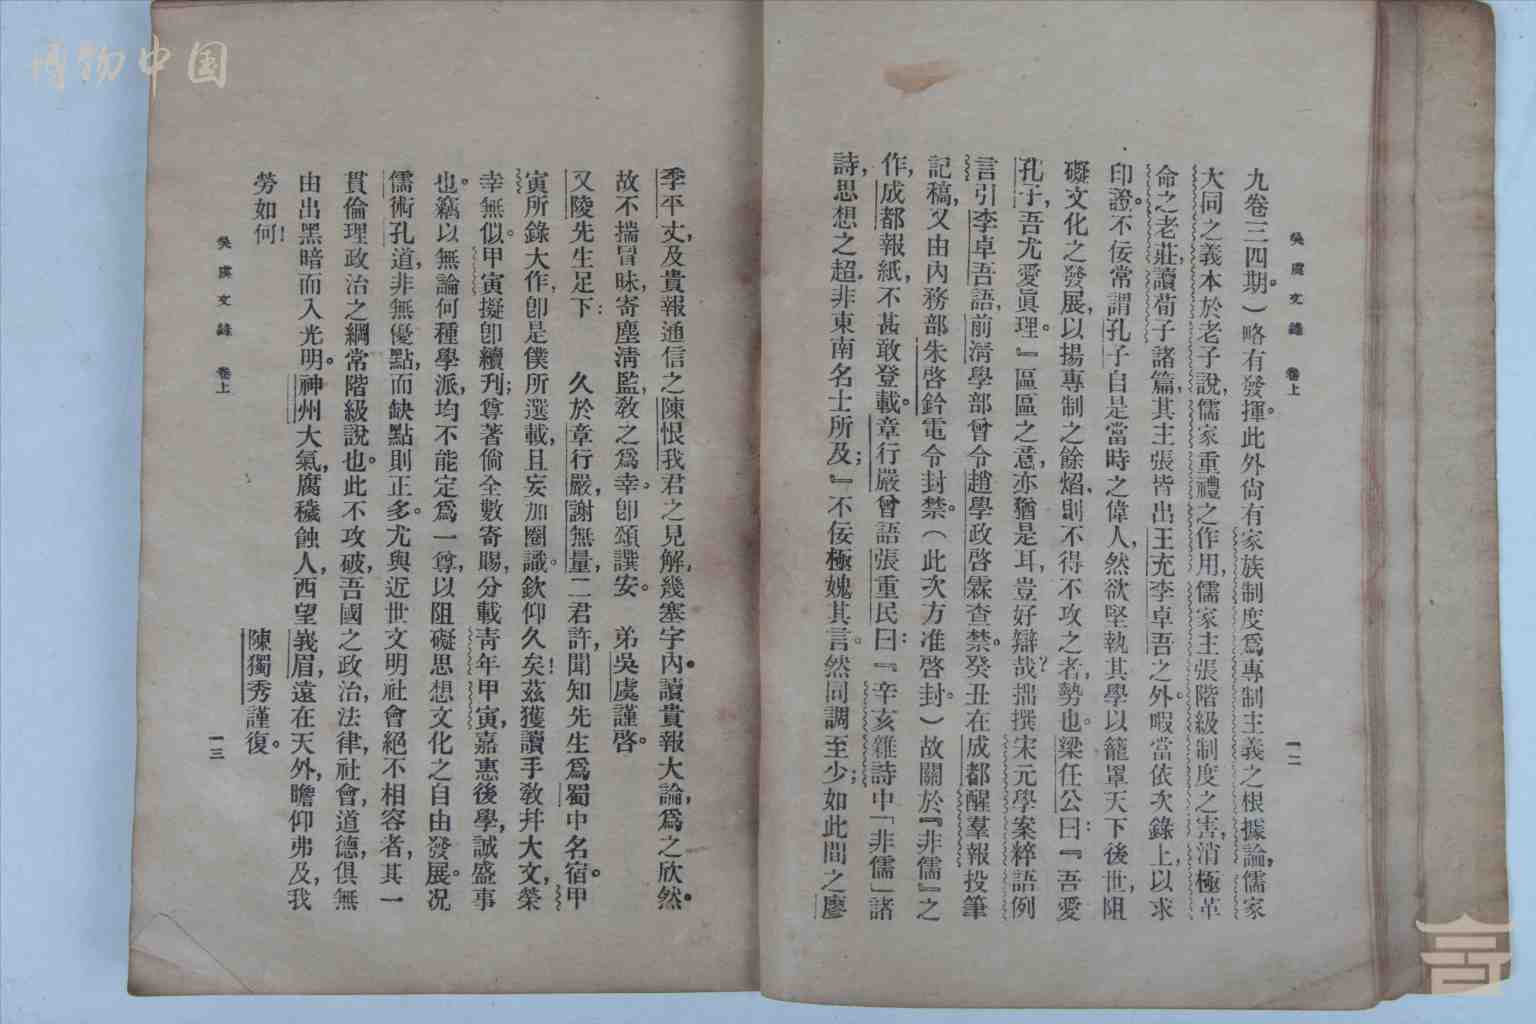 博物中国
吳虞文錄　卷上
一二
九卷三四期。）略有發揮。此外尙有家族制度爲專制主義之根據論，儒家
大同之義本於老子說，儒家重禮之作用，儒家主張階級制度之害，消極革
命之老莊，讀荀子諸篇，其主張皆出王充李卓吾之外。暇當依次錄上以求
印證。不佞常謂孔子自是當時之偉人，然欲堅執其學以籠罩天下後世，阻
礙文化之發展，以揚專制之餘焰，則不得不攻之者，勢也。梁任公曰：『吾愛
孔子，吾尤愛眞理。』區區之意，亦猶是耳，豈好辯哉？拙撰宋元學案粹語例
言引李卓吾語，前淸學部曾令趙學政啓霖查禁。癸丑在成都醒羣報投筆
記稿，又由內務部朱啓鈐電令封禁。（此次方准啓封。）故關於『非儒』之
作，成都報紙，不甚敢登載。章行嚴曾語張重民曰：『辛亥雜詩中「非儒」諸
詩，思想之超，非東南名士所及；』不佞極媿其言。然同調至少；如此間之廖
季平丈，及貴報通信之陳恨我君之見解，幾塞宇內。讀貴報大論，爲之欣然。
故不揣冒昧，寄塵淸監，敎之爲幸。卽頌譔安。　弟吳虞謹啓。
又陵先生足下：　久於章行嚴，謝無量，二君許，聞知先生爲蜀中名宿。甲
寅所錄大作，卽是僕所選載，且妄加圈識。欽仰久矣！茲獲讀手敎幷大文，榮
幸無似。甲寅擬卽續刋；尊著倘全數寄賜，分載靑年甲寅，嘉惠後學，誠盛事
也。竊以無論何種學派，均不能定爲一尊，以阻礙思想文化之自由發展。况
儒術孔道，非無優點，而缺點則正多。尤與近世文明社會絕不相容者，其一
貫倫理政治之綱常階級說也。此不攻破，吾國之政治，法律，社會，道德，俱無
由出黑暗而入光明。神州大氣，腐穢蝕人，西望峩眉，遠在天外，瞻仰弗及，我
勞如何！　陳獨秀謹復。
吳虞文錄　卷上
一三